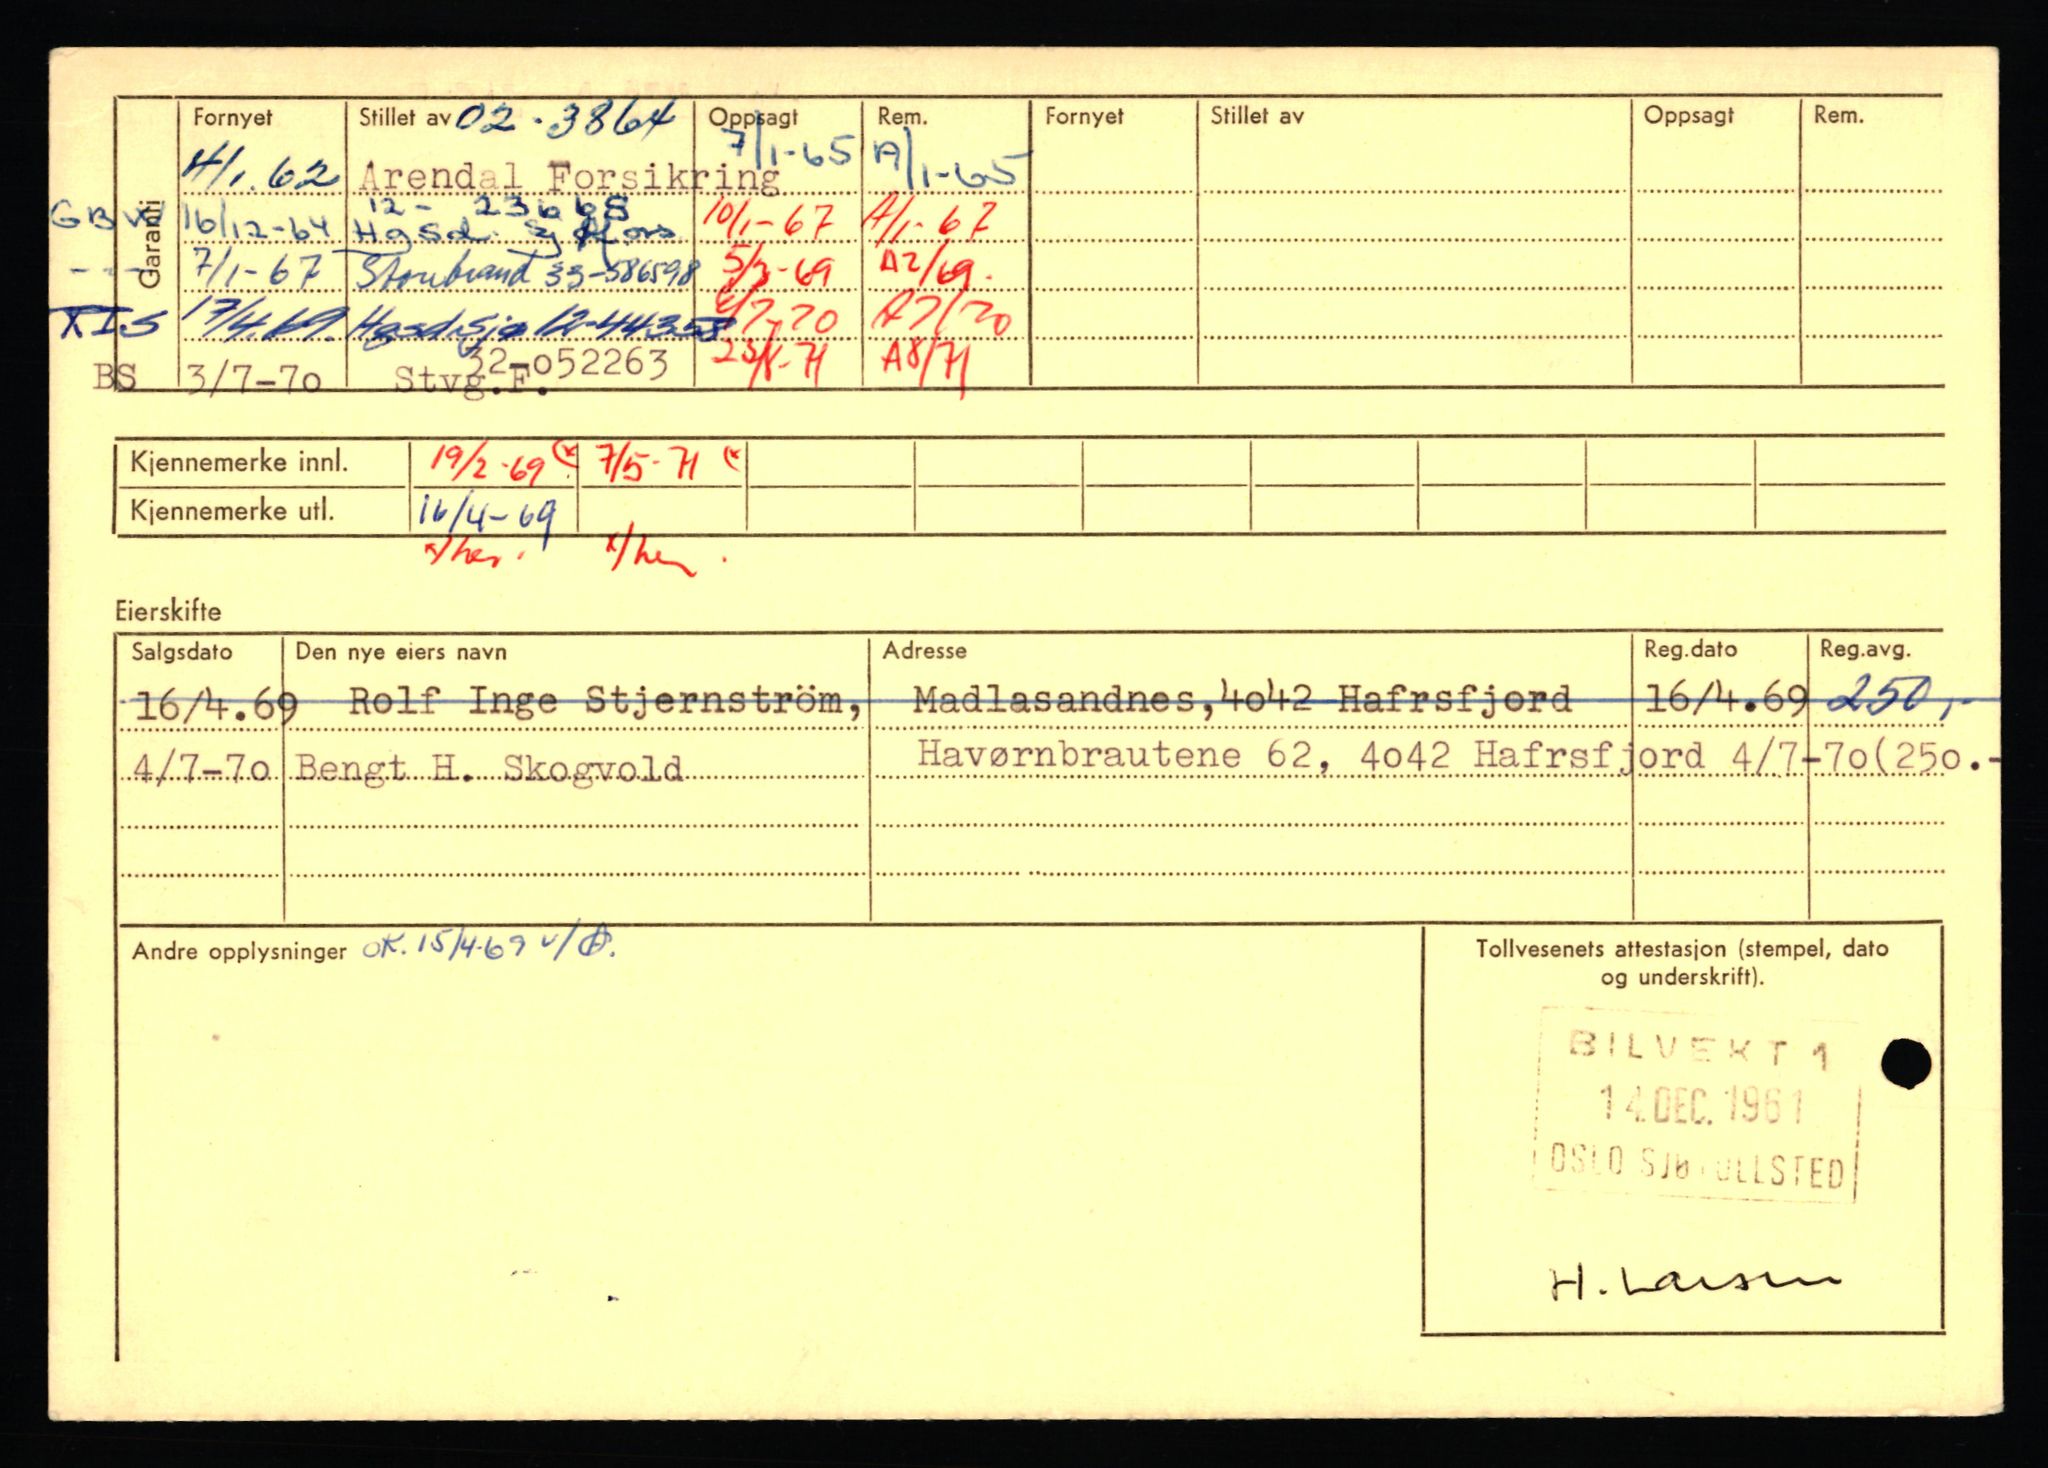 Garanti
Fornyet Stillet av 02-3864 Oppsagt Rem. Fornyet Stillet av Oppsagt Rem.
4/1.62 Arendal Forsikring 7/1-65 A/1-65
12- 23665
16/12-64 Hgsd. 10/1-67 A/1-67
7/1-67 Storebrand 33-586598 5/3-69 A2/69.
XIS 17/4.69. Hgsd. Sjø 12-44358 6/7-70 A7/70
32-052263
BS 3/7-70 Stvg.F. 23/8-71 A8/71
Kjennemerke innl. 19/2-69 (x 7/5-71 (x
Kjennemerke utl. 16/4-69
x/her. x/her.
Eierskifte
Salgsdato Den nye eiers navn Adresse Reg.dato Reg.avg.
16/4.69 Rolf Inge Stjernström, Madlasandnes,4042 Hafrsfjord 16/4.69 250,-
4/7-70 Bengt H. Skogvold Havørnbrautene 62, 4042 Hafrsfjord 4/7-70(250.-
Andre opplysninger OK. 15/4-69 v/
Tollvesenets attestasjon (stempel, dato
og underskrift).
BILVEKT 1
14.DEC. 1961
OSLO SJØTOLLSTED
H. Larsen